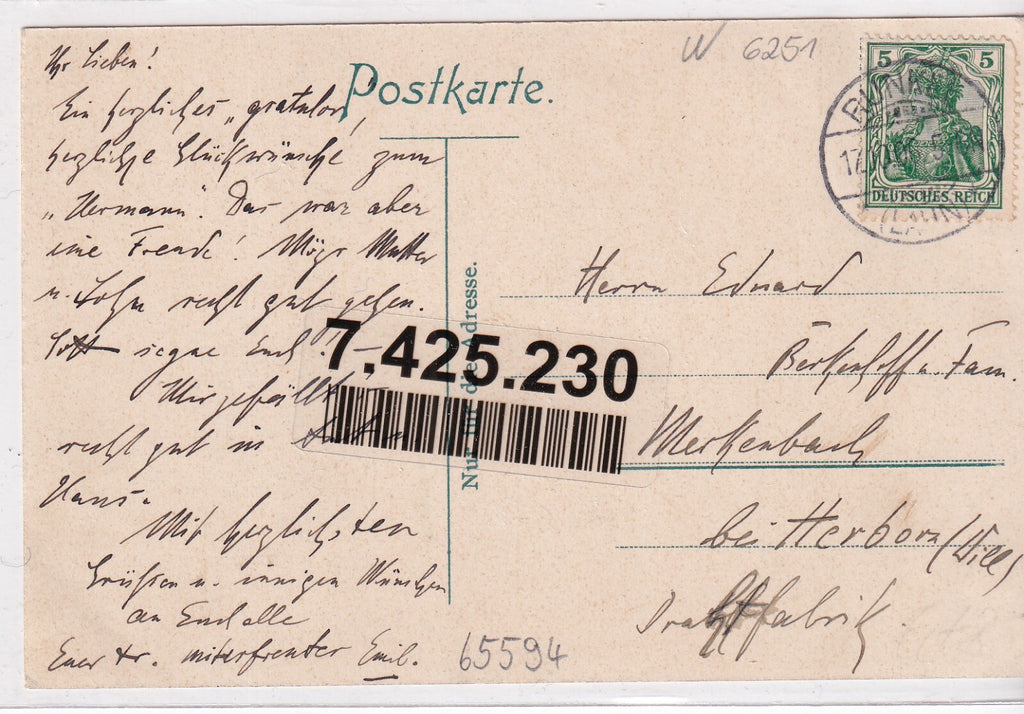 W 6251
Postkarte.
5 5
DEUTSCHES REICH
RUNK
17
(LAHN)
Ihr Lieben!
Ein herzliches „gratulor",
herzliche Glückwünsche zum
„Hermann". Das war aber
eine Freude! Möge Mutter
u. Sohn recht gut gehen.
Gott segne Euch! –
Mir gefällt
recht gut in
Haus.
Mit herzlichsten
Grüßen u. innigen Wünschen
an Euch alle
Euer tr. miterfreuter Emil.
Nur für die Adresse.
7,425.230
Herrn Eduard
Berkenhoff u. Fam.
Merkenbach
bei Herborn (Dill)
Drahtfabrik.
65594